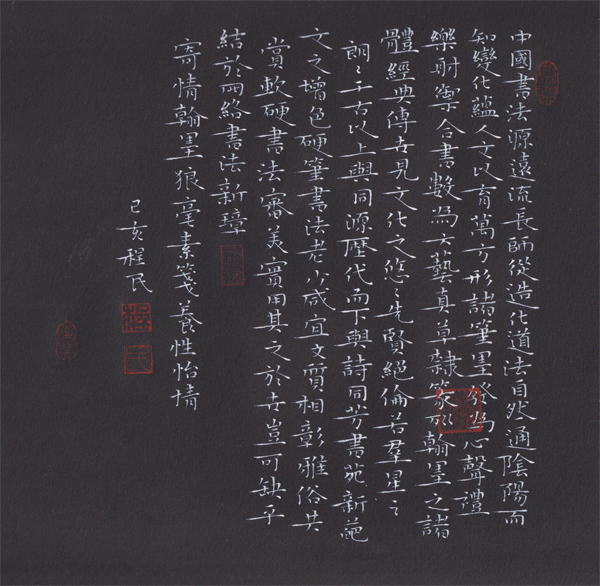 中國書法源遠流長師從造化道法自然通陰陽而
知變化蘊人文以育萬方形諸筆墨發為心聲禮
樂射禦合書數為六藝真草隸篆永翰墨之諸
體經典傳世見文化之悠悠先賢絕倫若群星之
朗朗千古以上與同源歷代而下與詩同芳書苑新葩
文之增色硬筆書法老少咸宜文質相彰雅俗共
賞軟硬書法審美實用其之於世豈可缺乎
結於网絡書法新璋
寄情翰墨狼毫素箋養性怡情
己亥程民